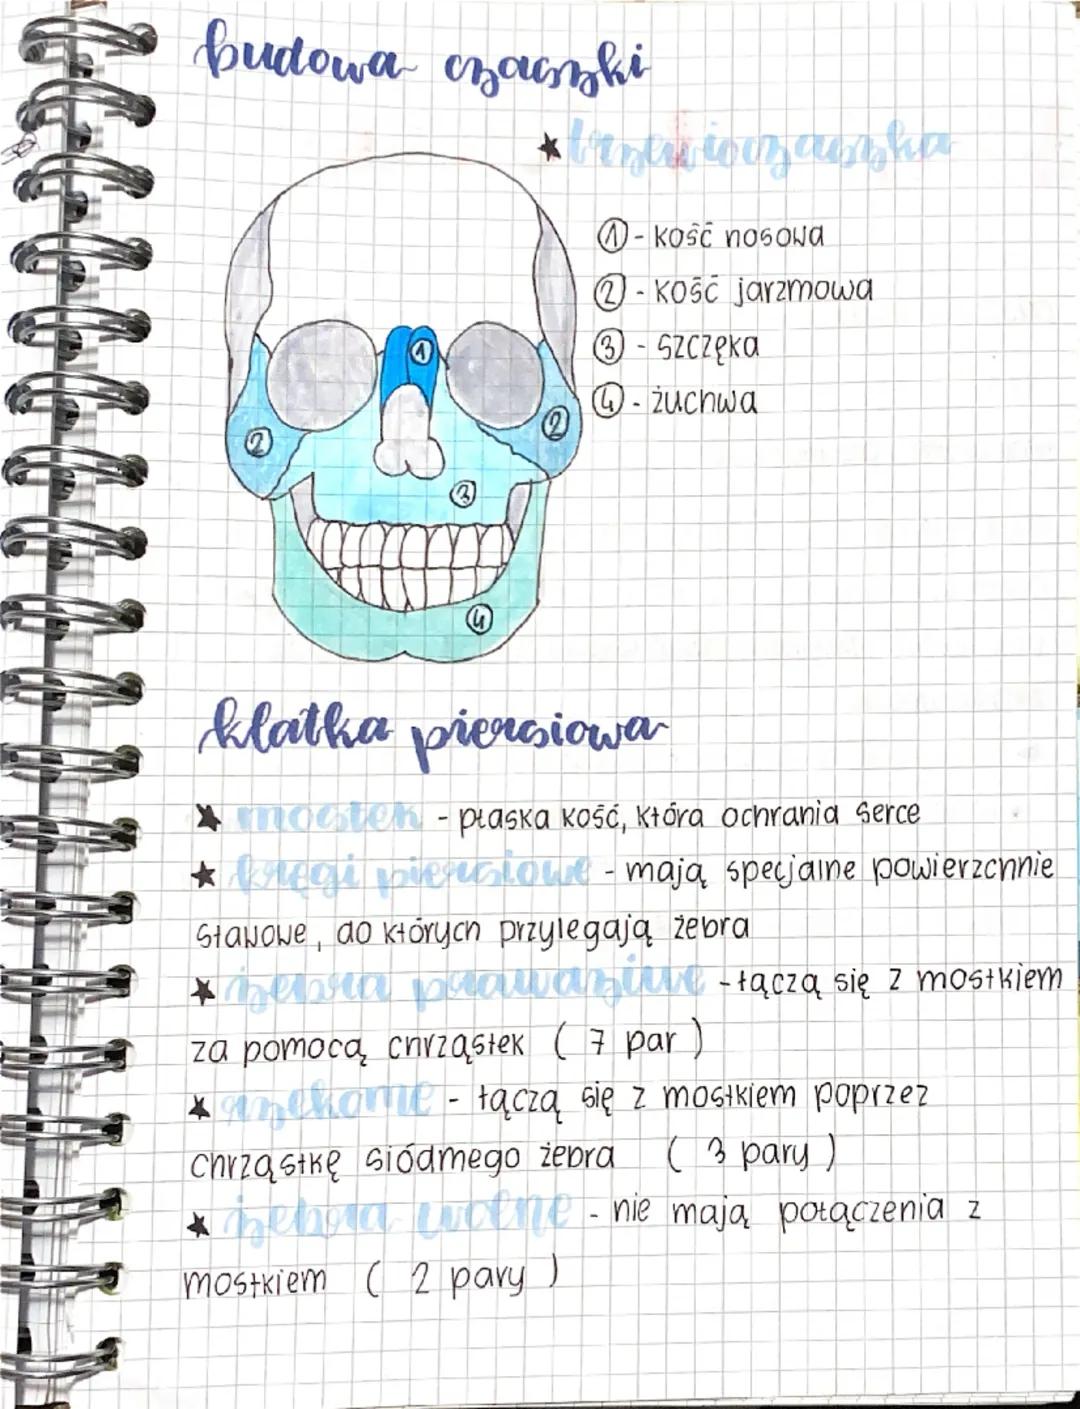 budowa czaszki
★ trzewioczaszka
① - kość nosowa
② - kość jarzmowa
③ - szczęka
④ - żuchwa
1
2
2
3
4
klatka piersiowa
★ mostek - płaska kość, która ochrania serce
★ kręgi piersiowe - mają specjalne powierzchnie
stawowe, do których przylegają żebra
★ żebra prawdziwe - łączą się z mostkiem
za pomocą chrząstek ( 7 par )
★ rzekome - łączą się z mostkiem poprzez
chrząstkę siódmego żebra ( 3 pary )
★ żebra wolne - nie mają połączenia z
mostkiem ( 2 pary )